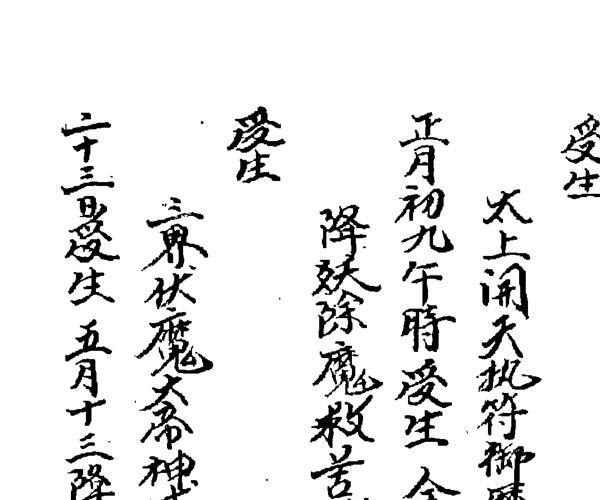 受生
太上開天执符御
正月初九午時受生
降妖除魔救苦
受生
三界伏魔大帝神
二十三日受生 五月十三降